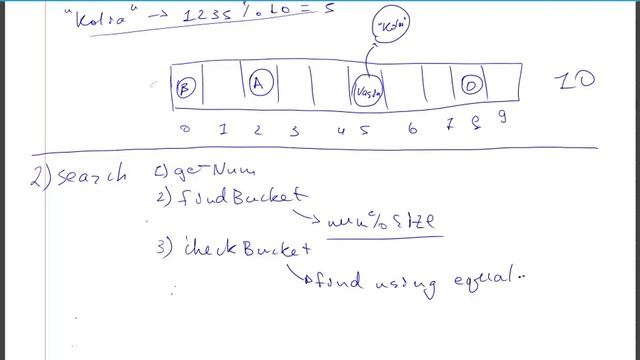 "Kolia" → 1235 % 10 = 5
"Kolia"
B A Vasia D 10
0 1 2 3 4 5 6 7 8 9
2) search 1) getNum
2) findBucket
num % size
3) checkBucket
find using equal..